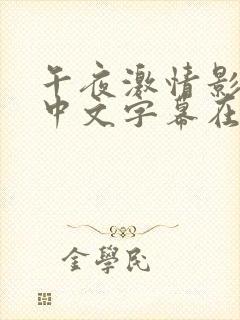 午夜激情影
中文字幕在
金學民